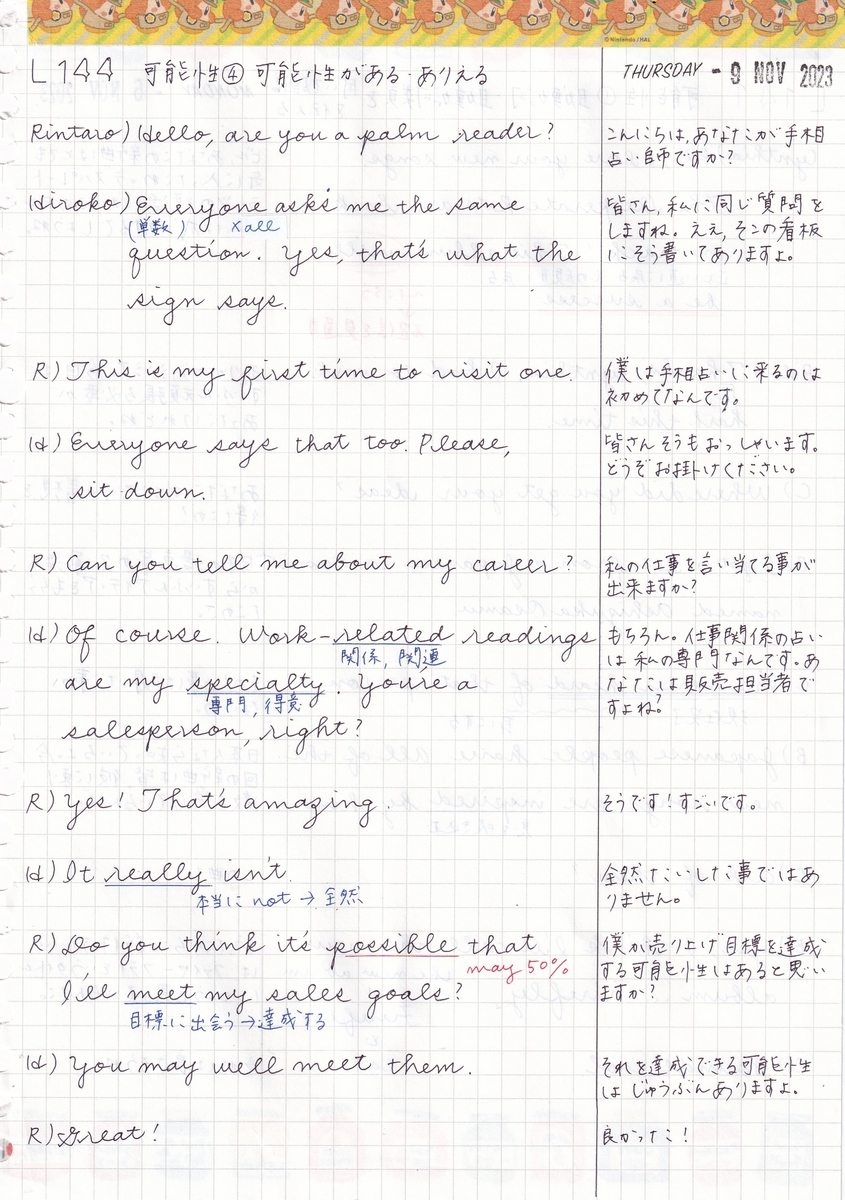 © Nintendo / HAL
L144 可能性④ 可能性がある・ありえる
THURSDAY - 9 NOV 2023
Rintaro) Hello, are you a palm reader?
こんにちは、あなたが手相
占い師ですか?
Hiroko) Everyone asks me the same
(単数) xall
question. Yes, that's what the
sign says.
皆さん、私に同じ質問を
しますね。ええ、そこの看板
にそう書いてありますよ。
R) This is my first time to visit one.
僕は手相占いに来るのは
初めてなんです。
H) Everyone says that too. Please,
sit down.
皆さんそうもおっしゃいます。
どうぞお掛けください。
R) Can you tell me about my career?
私の仕事を言い当てる事が
出来ますか?
H) Of course. Work-related readings
関係, 関連
are my specialty. You're a
専門, 得意
salesperson, right?
もちろん。仕事関係の占い
は私の専門なんです。あ
なたは販売担当者で
すよね?
R) Yes! That's amazing.
そうです!すごいです。
H) It really isn't.
本当に not → 全然
全然たいした事ではあ
りません。
R) Do you think it's possible that
may 50%
I'll meet my sales goals?
目標に出会う→達成する
僕が売り上げ目標を達成
する可能性はあると思い
ますか?
H) You may well meet them.
それを達成できる可能性
はじゅうぶんありますよ。
R) Great!
良かった!